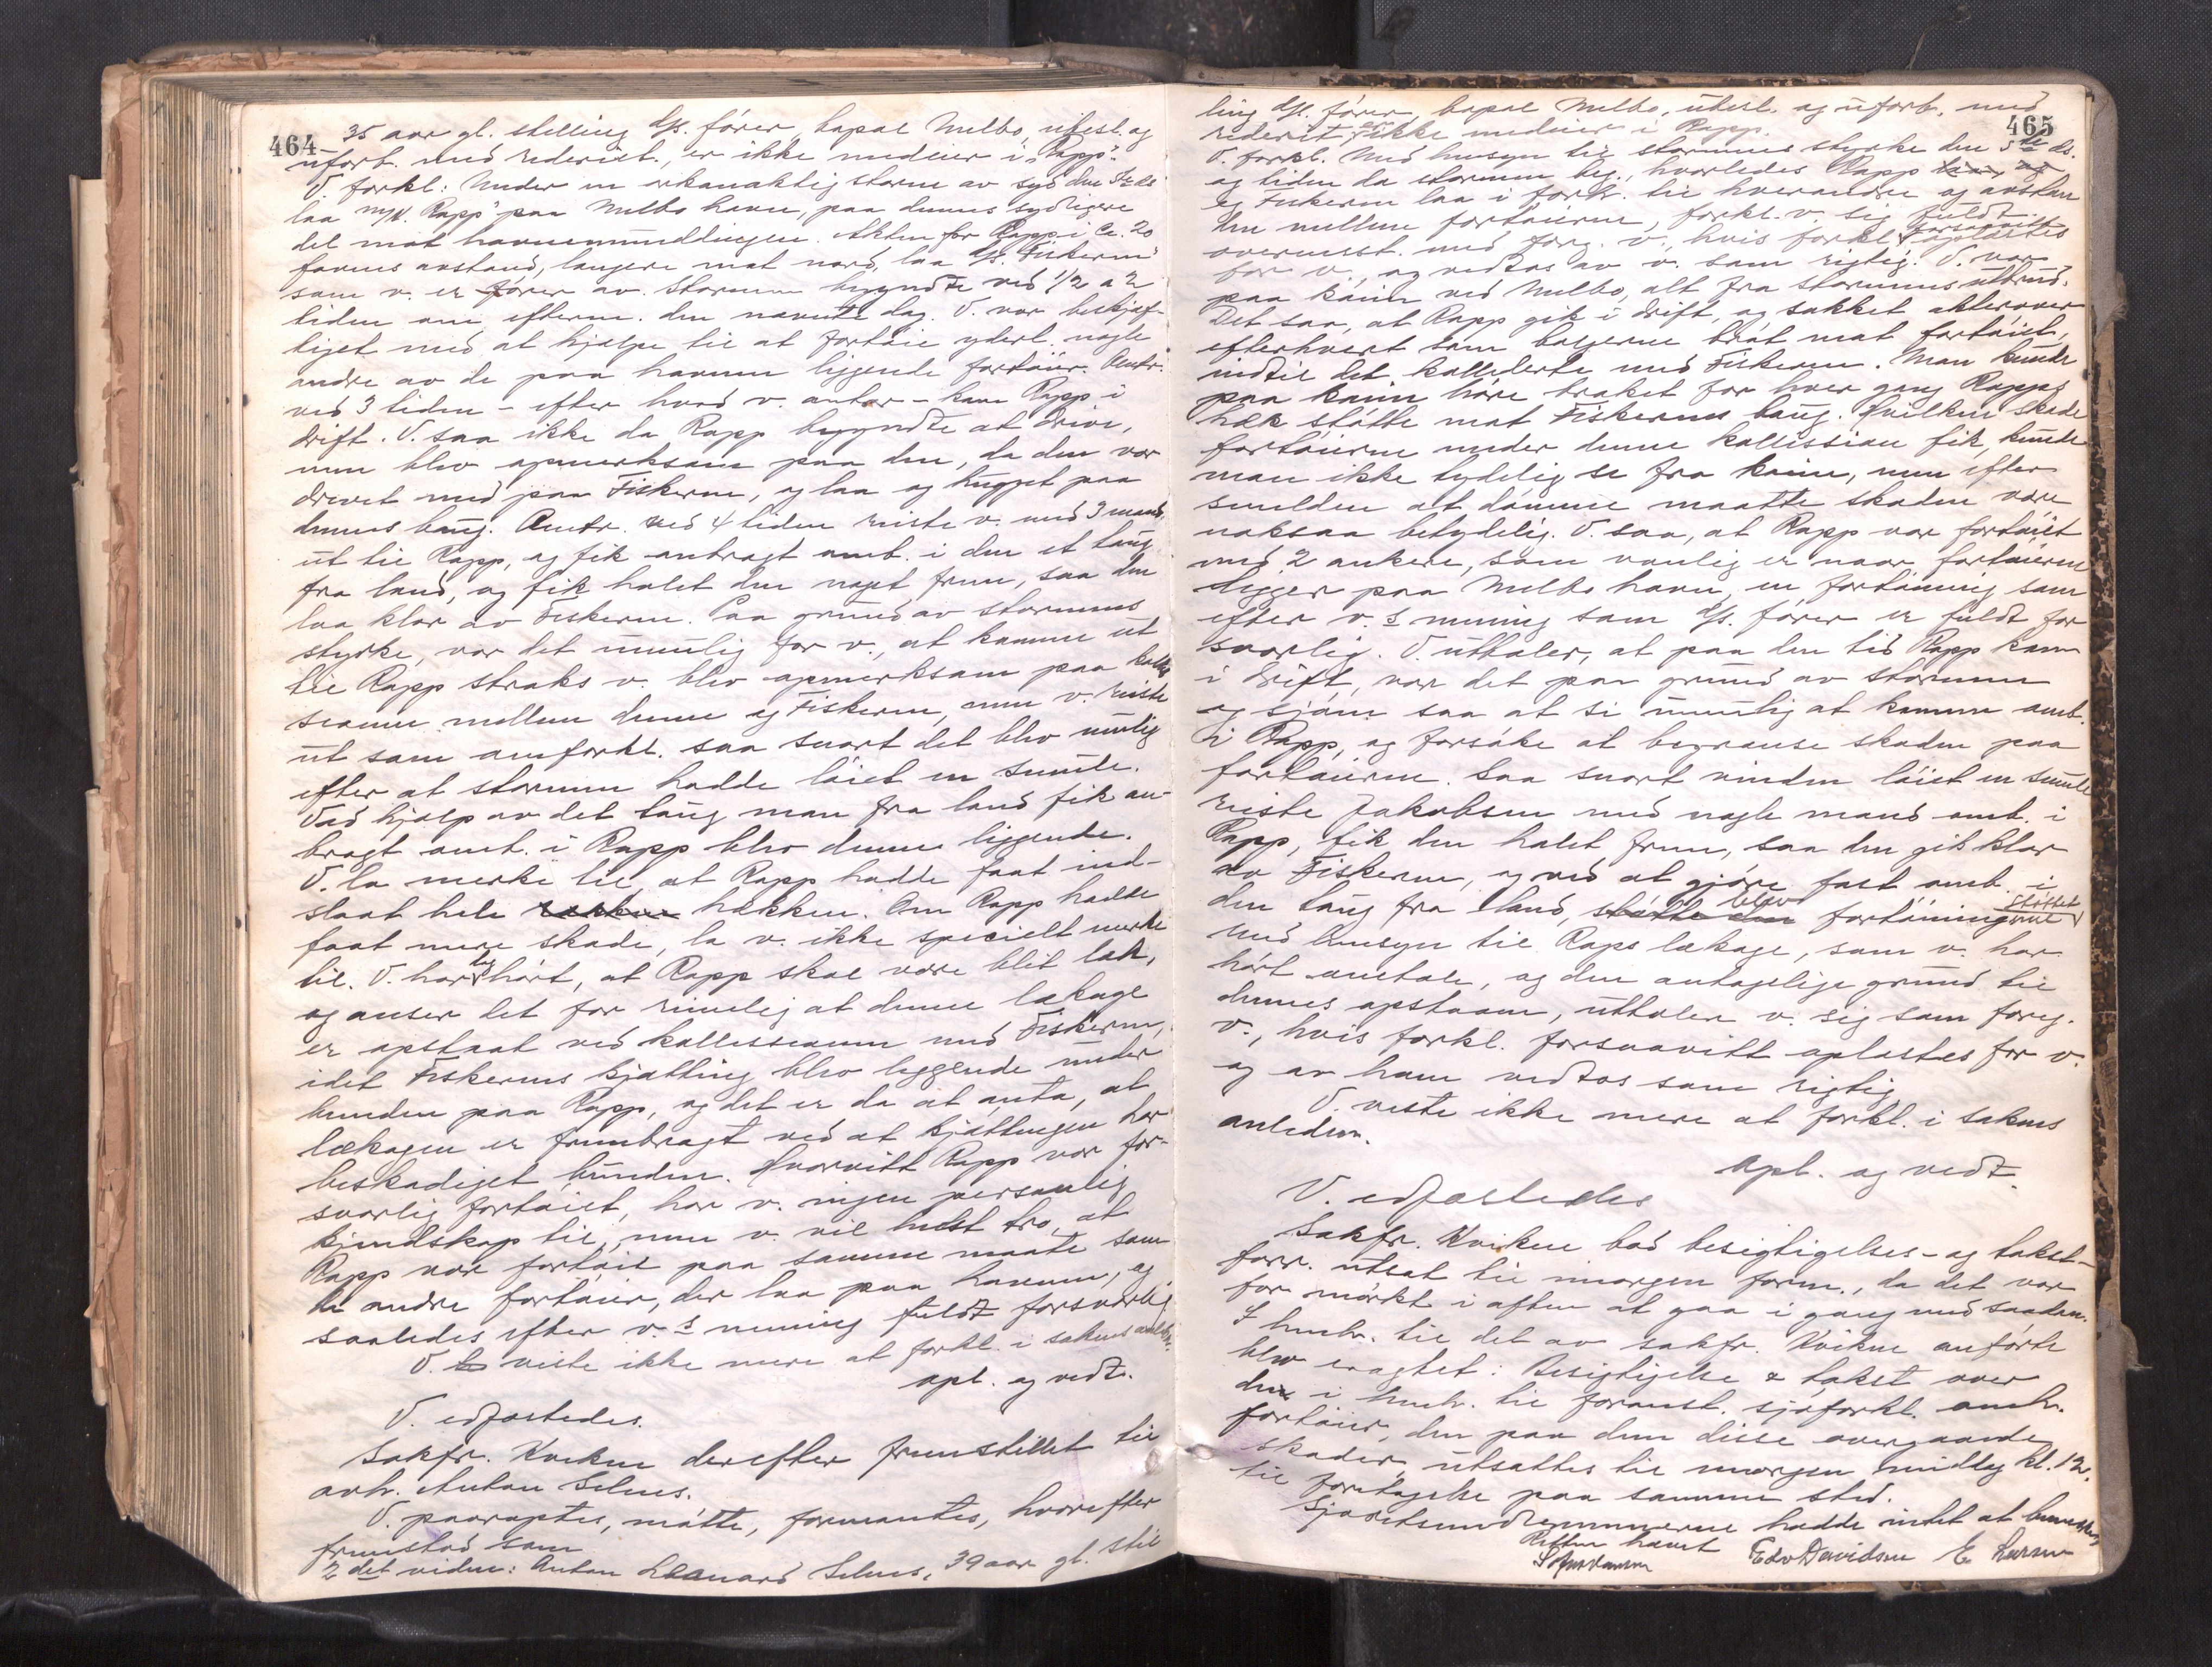 464
35 aar gl. stelling d/s. fører, bopæl Melbo, ubesl. og
uforb. med rederiet., er ikke medeier i „Rapp".
V. forkl: Under en orkanaktig storm av syd den 5te ds
laa m/k. „Rapp" paa Melbo havn, paa dennes sydligere
del mot havnemundingen. Akten for Rapp i ca. 20
favnes avstand, længere mot nord, laa d/s. „Fiskeren"
som v. er fører av. Stormen begyndte ved 1/2 a 2
tiden om efterm. den nævnte dag. V. var beskjæf-
tiget med at hjælpe til at fortøie yderl. nogle
andre av de paa havnen liggende fartøier. Omtr.
ved 3 tiden – efter hvad v. antar – kom Rapp i
drift. V. saa ikke da Rapp begyndte at drive,
men blev opmerksom paa den, da den var
drevet ned paa Fiskeren, og laa og hugget paa
dennes baug. Omtr. ved 4 tiden reiste v. med 3 mand
ut til Rapp, og fik anbragt omb. i den et taug
fra land, og fik halet den noget frem, saa den
laa klar av Fiskeren. Paa grund av stormens
styrke, var det umulig for v., at komme ut
til Rapp straks v. blev opmerksom paa kolli-
sionen mellem denne og Fiskeren, men v. reiste
ut som omforkl. saa snart det blev mulig
efter at stormen hadde løiet en smule.
Ved hjælp av det taug man fra land fik an-
bragt omb. i Rapp blev denne liggende.
V. la merke til, at Rapp hadde faat ind-
slaat hele hækken. Om Rapp hadde
faat mere skade, la v. ikke specielt merke
til. V. har dog hørt, at Rapp skal være blit læk,
og anser det for rimelig at denne lækage
er opstaat ved kollissionen med Fiskeren,
idet Fiskerens kjætting blev liggende under
bunden paa Rapp, og det er da at anta, at
lækagen er frembragt ved at kjættingen har
beskadiget bunden. Hvorvitt Rapp var for-
svarlig fortøiet, har v. ingen personlig
kjendskap til, men v. vil helst tro, at
Rapp var fortøiet paa samme maate som
de andre fartøier, der laa paa havnen, og
saaledes efter v.s mening fuldt forsvarlig
V. viste ikke mere at forkl. i sakens anledn.
opl. og vedt.
V. edfæstedes.
Sakfr. Kvikne derefter fremstillet til
avh. Anton Selnes.
V. paaroptes, møtte, formantes, hvorefter
fremstod som
2det vidne: Anton Leonard Selnes, 39 aar gl. stil
465
ling d/s. fører, bopæl Melbo, ubesl. og uforb. med
rederiet, er ikke medeier i Rapp.
V. forkl. Med hensyn til stormens styrke den 5te ds.
og tiden da stormen beg., hvorledes Rapp
og Fiskeren laa i forh. til hverandre og avstan
den mellem fartøierne, forkl. v. sig fuldt
overensst. med foreg. v., hvis forkl. forsaavitt oplæstes
for v., og vedtas av v. som rigtig. V. var
paa kaien ved Melbo, alt fra stormens utbrud.
Det saa, at Rapp gik i drift, og sakket akterover
efterhvert som bølgerne brøt mot fartøiet,
indtil det kolliderte med Fiskeren. Man kunde
paa kaien høre braket for hver gang Rapps
hæk støtte mot Fiskerens baug. Hvilken skade
fartøierne under denne kollission fik, kunde
man ikke tydelig se fra kaien, men efter
smelden at dømme maatte skaden være
noksaa betydelig. V. saa, at Rapp var fortøiet
med 2 ankere, som vanlig er naar fartøierne
ligger paa Melbo havn, en fortøining som
efter v.s mening som d/s. fører er fuldt for
svarlig. V. uttaler, at paa den tid Rapp kom
i drift, var det paa grund av stormen
og sjøen saa at si umulig at komme omb.
i Rapp, og forsøke at begrænse skaden paa
fartøierne. Saa snart vinden løiet en smule
reiste Jakobsen med nogle mand omb. i
Rapp, fik den halet frem, saa den gik klar
av Fiskeren, og ved at gjøre fast omb. i
den taug fra land, støtte den blev fortøiningerne støttet
Med hensyn til Raps lækage, som v. har
hørt omtale, og den antagelige grund til
dennes opstaaen, uttaler v. sig som foreg.
v., hvis forkl. forsaavitt oplæstes for v.
og av ham vedtas som rigtig.
V. viste ikke mere at forkl. i sakens
anledn.
Opl. og vedt.
V. edfæstedes
Sakfr. Kvikne bad besigtigelses- og takst-
forr. utsat til imorgen form., da det var
for mørkt i aften at gaa i gang med saadan.
I henh. til det av sakfr. Kvikne anførte
blev eragtet: Besigtigelse & takst over
de i henh. til foranst. sjøforkl. omh.
fartøier, den paa dem disse overgaaede
skader, utsættes til imorgen middag kl. 12.
til foretagelse paa samme sted.
Sjøretsmedlemmerne hadde intet at bemerke
Retten hævet
Edv Davidsen E. Larsen